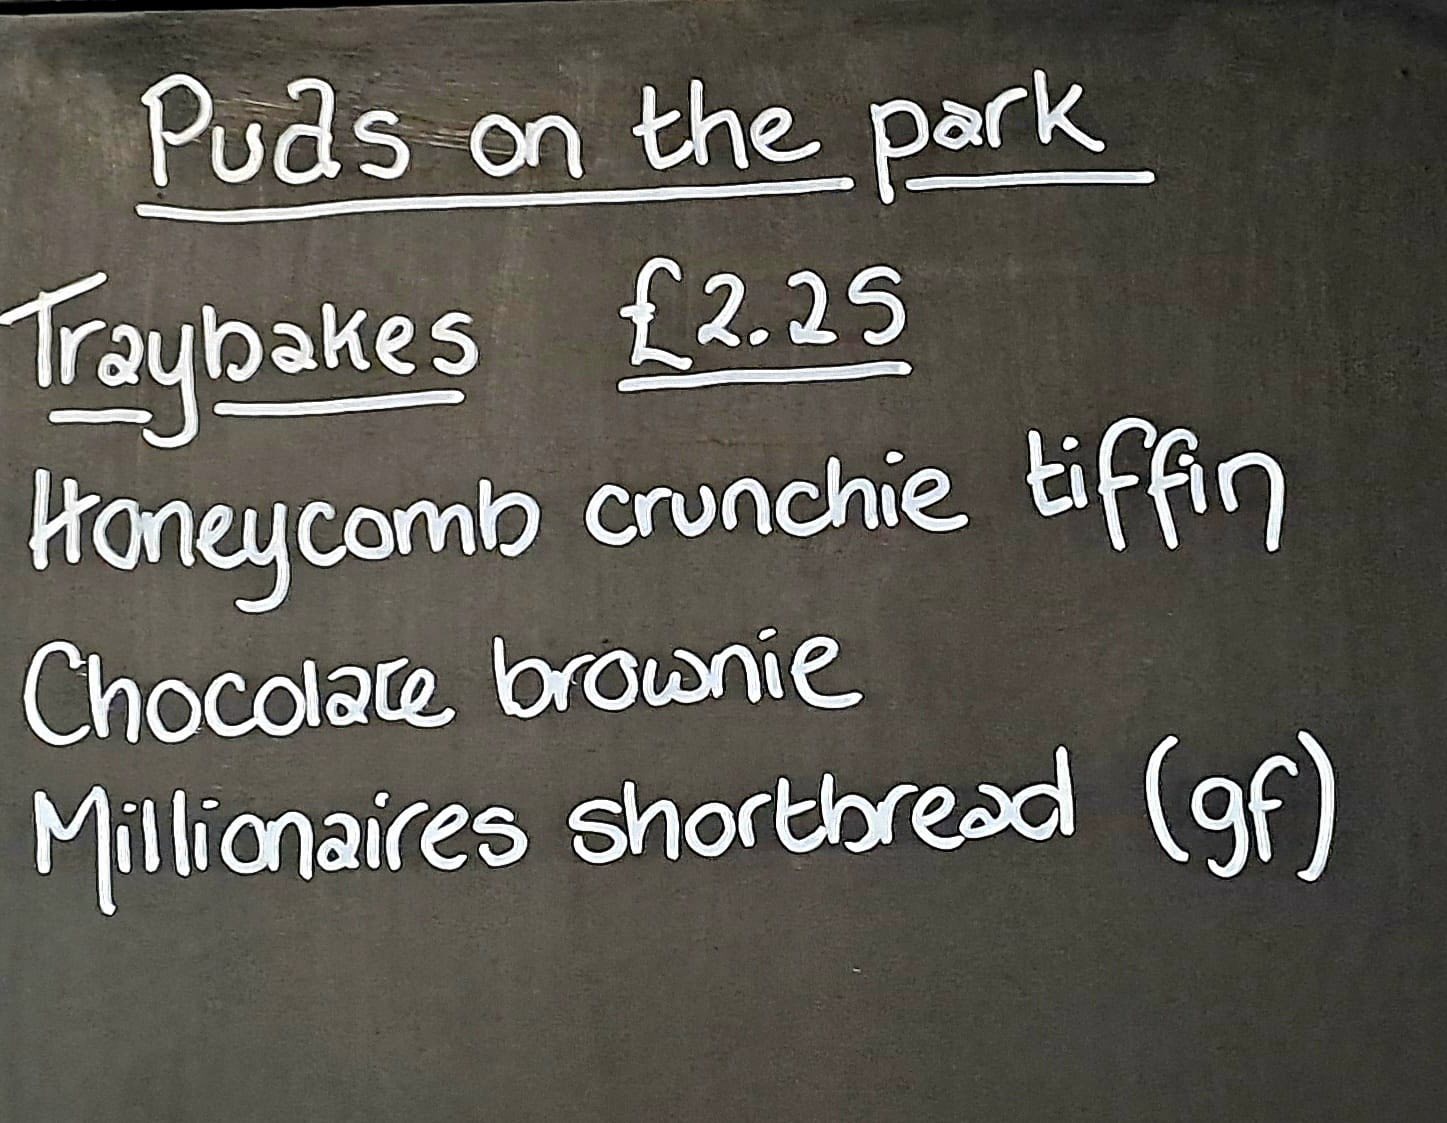 Puds on the park
Traybakes £2.25
Honeycomb crunchie tiffin
Chocolate brownie
Millionaires shortbread (gf)